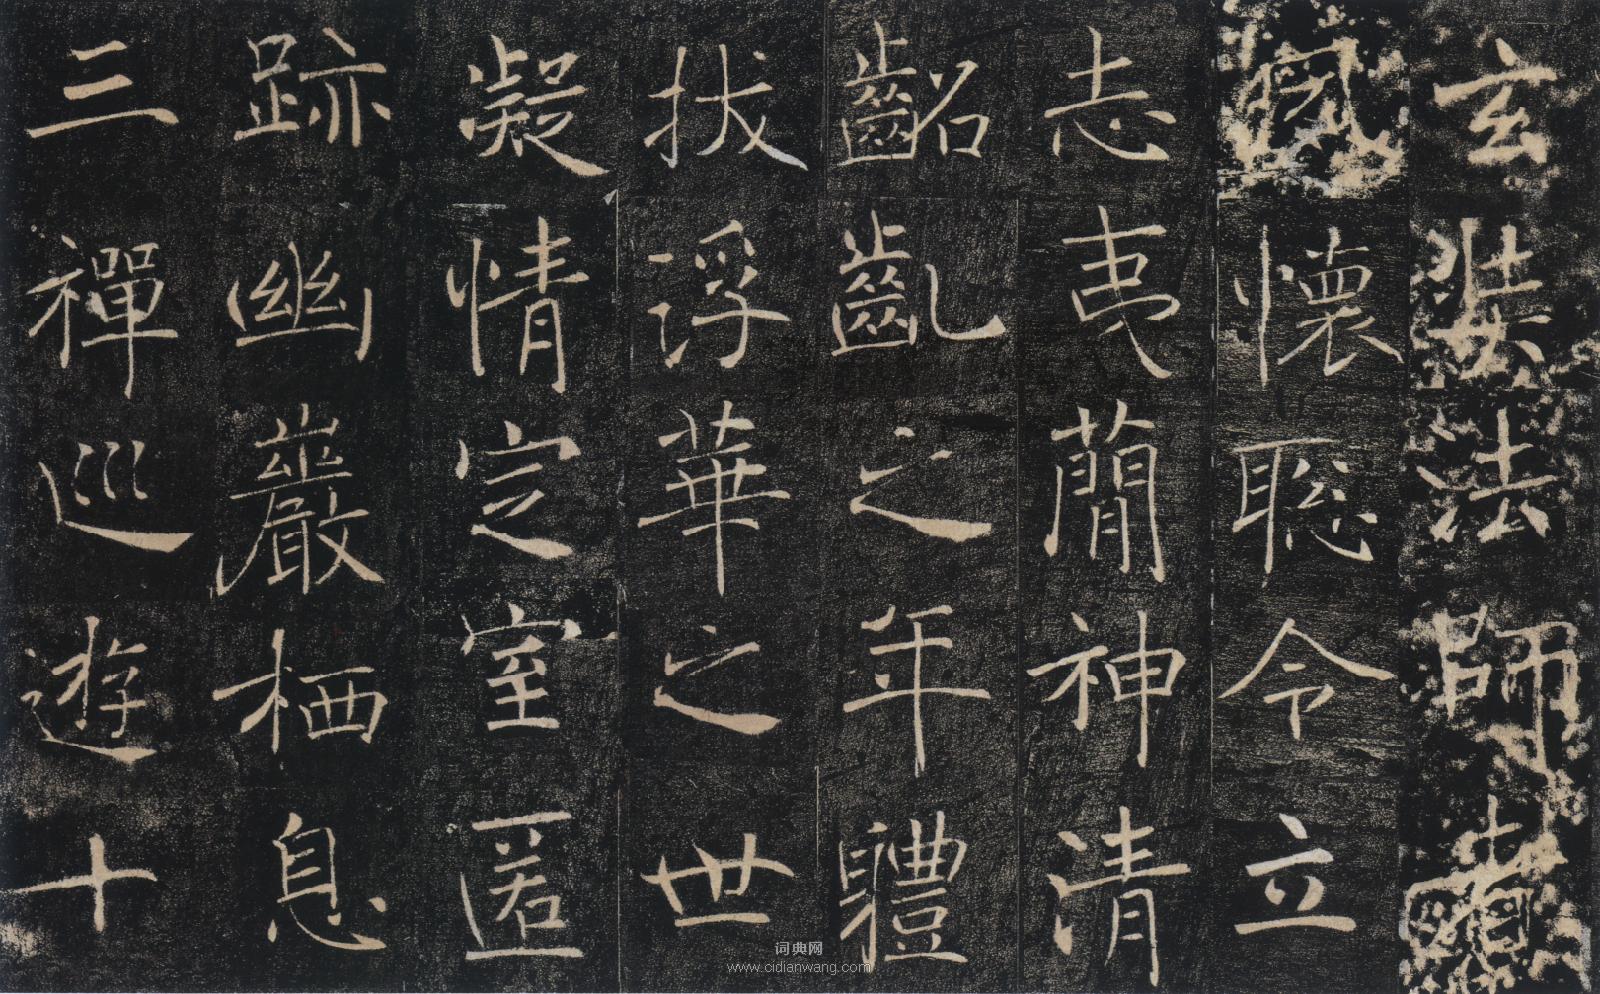 玄奘法師者
夙懷聰令立
志夷簡神清
齠齔之年體
拔浮華之世
凝情定室匿
跡幽巖栖息
三禪巡遊十
词典网
www.cidianwang.com